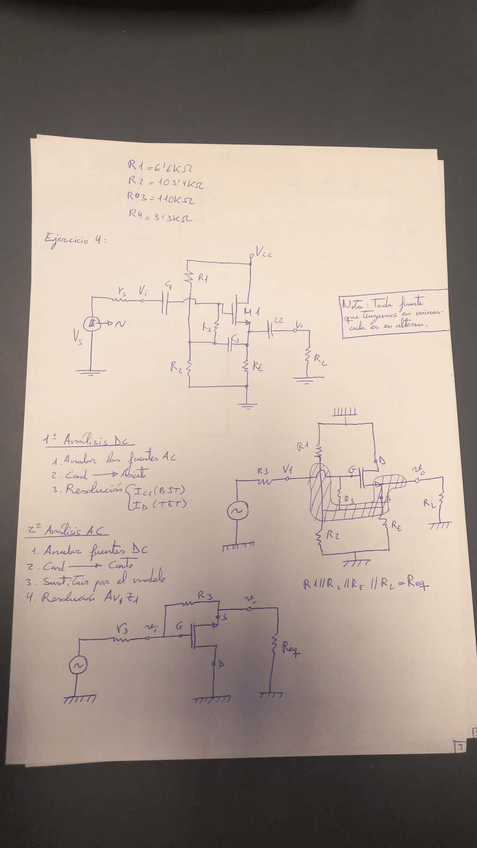 R1 = 6'6KΩ
R2 = 103'4KΩ
R3 = 110KΩ
R4 = 3'3KΩ
Ejercicio 4:
Vcc
R1
rs Vi C1 M1
Vs
R3 C3 C2 Vo
R2 RE RL
Nota: Toda fuente
que tengamos en minus-
cula es en alterna.
1º Análisis DC
1. Anular las fuentes AC
2. Cond → Abierto
3. Resolución { ICQ (BJT)
ID (TET)
R1 D
R3 V1 G vo
R3 S
R2 RE RL
R1//R2//RE//RL = Req
2º Análisis AC
1. Anular fuentes DC
2. Cond → Corto
3. Sustituir por el modelo
4. Resolución Av, Z1
R3
rs vi G S vo
D Req
3